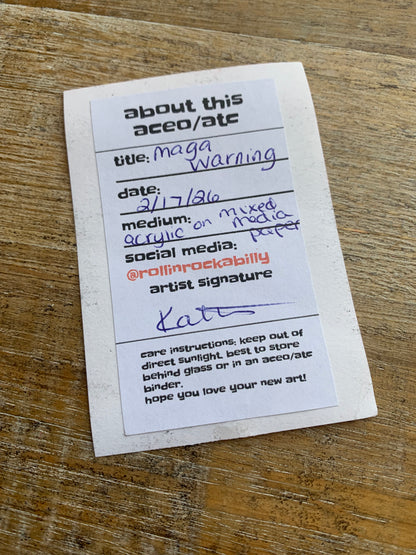 about this
aceo/atc
title: Maga
Warning
date:
2/17/26
medium:
acrylic on mixed
media
paper
social media:
@rollinrockabilly
artist signature
Kat
care instructions: keep out of
direct sunlight, best to store
behind glass or in an aceo/atc
binder.
hope you love your new art!